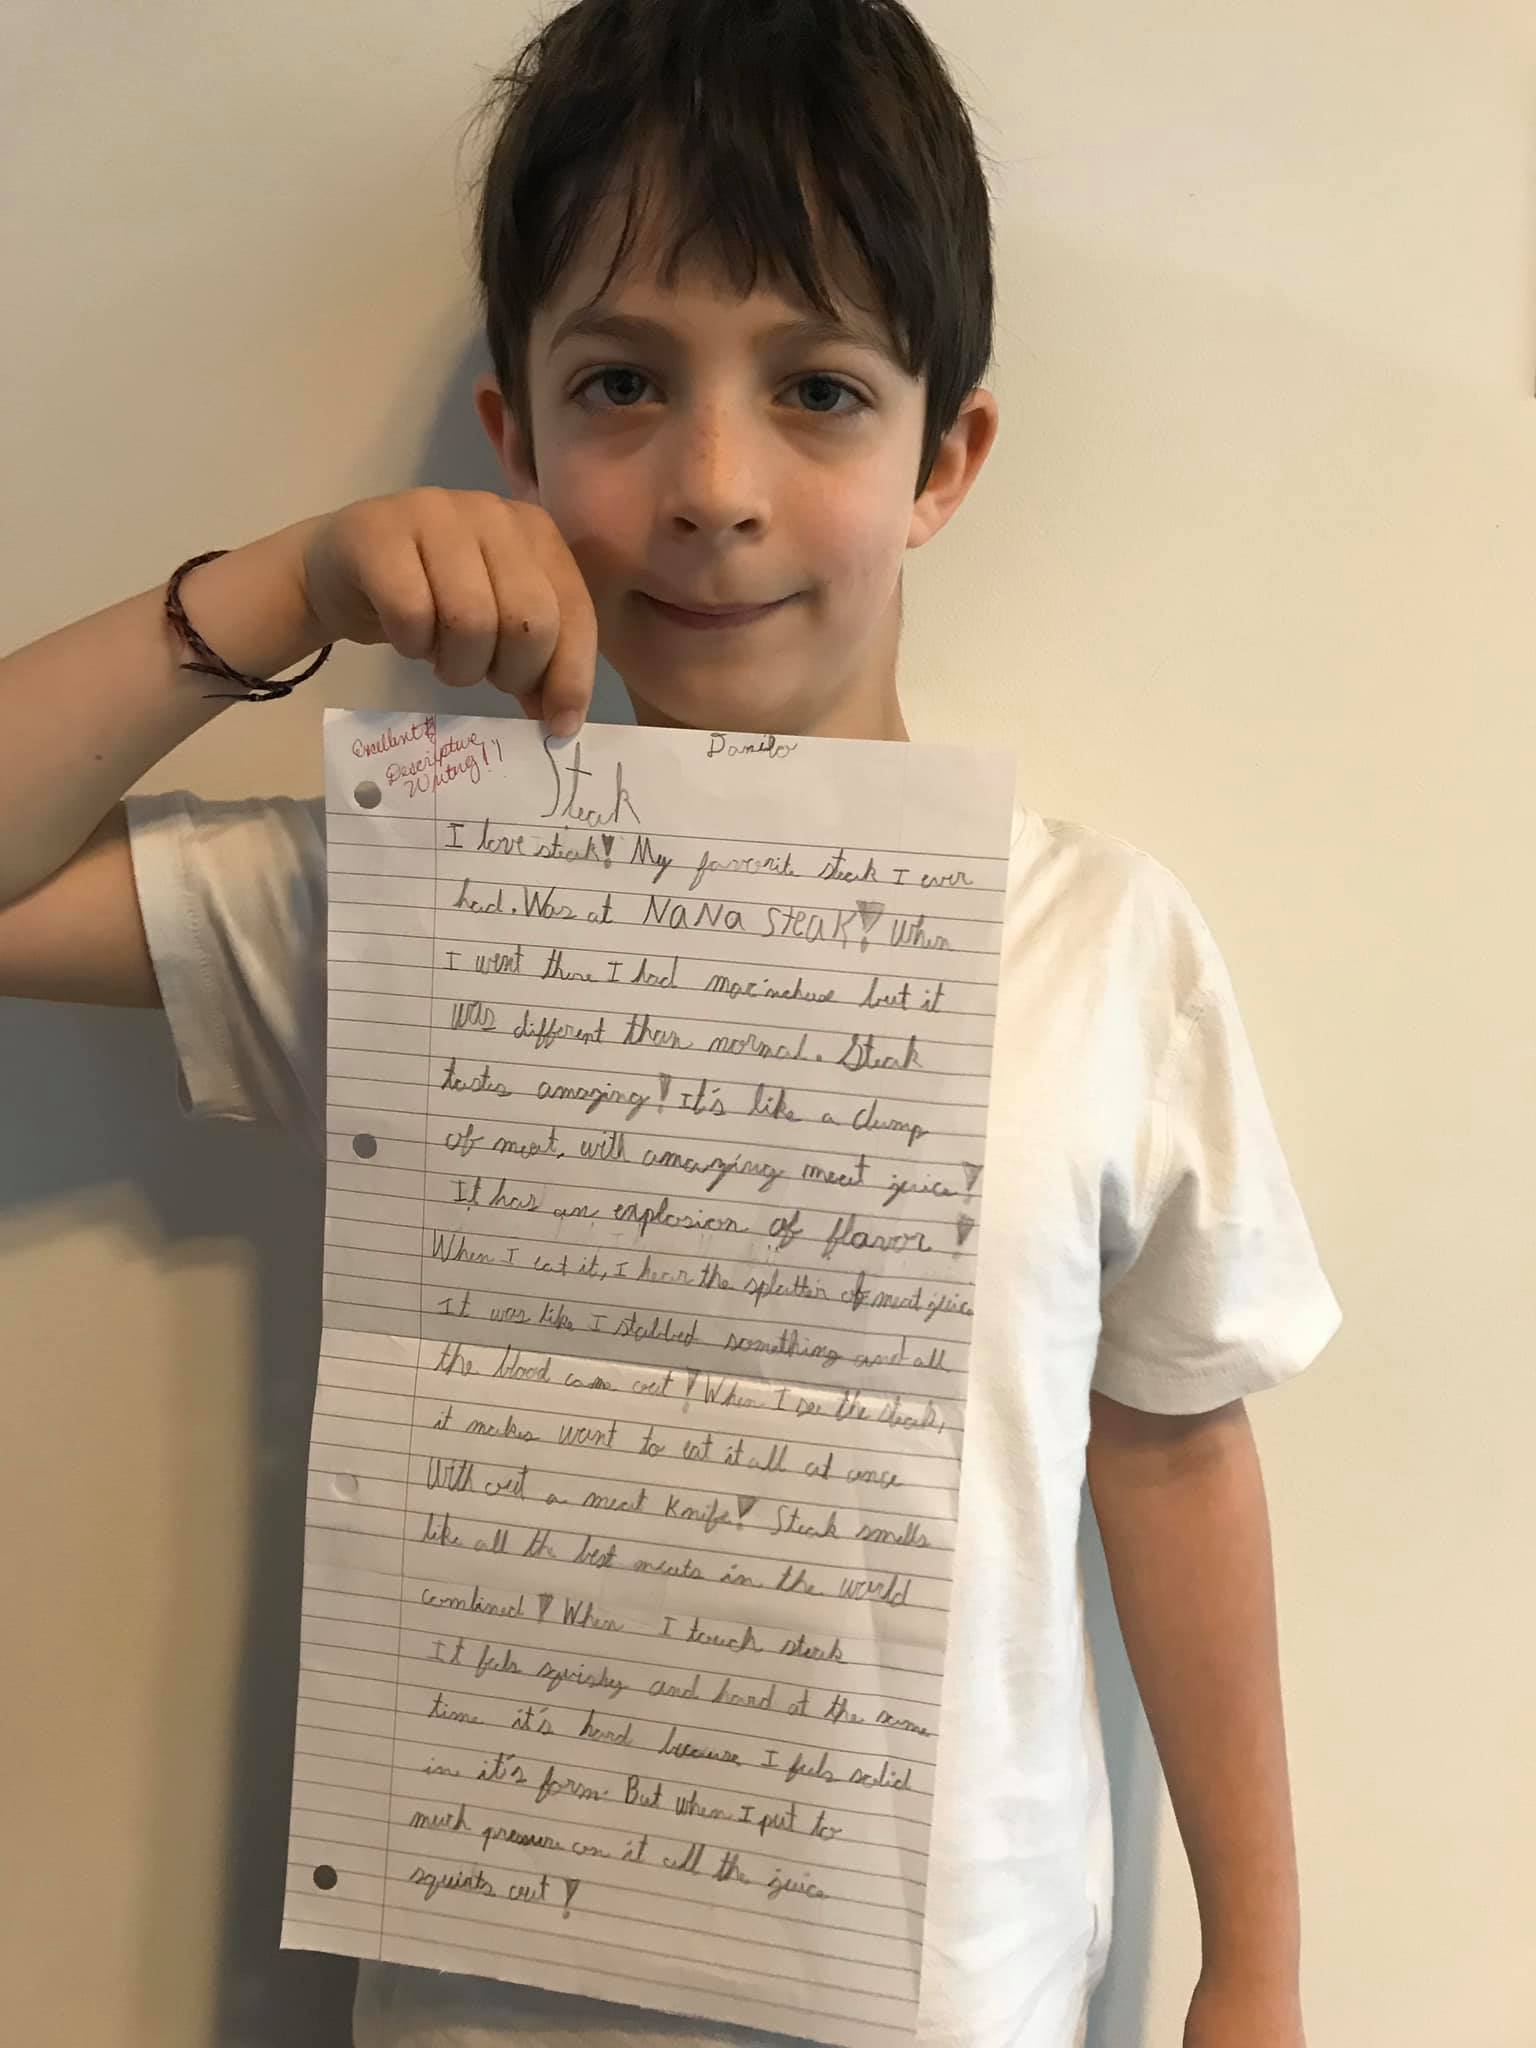 Excellent
Descriptive
Writing!!
Danilo
Steak
I love steak! My favorite steak I ever
had. Was at NaNa STEAK! When
I went there I had but it
was different than normal. Steak
tastes amazing! It's like a clump
of meat, with amazing meat juice!
It has an explosion of flavor!
When I eat it, I hear the splatter of meat juice
It was like I stabbed something and all
the blood came out! When I see the steak,
it makes want to eat it all at once
With out a meat knife! Steak smells
like all the best meats in the world
combined! When I touch steak
It feels squishy and hard at the same
time it's hard because I feels solid
in it's form. But when I put to
much pressure on it all the juice
squirts out!